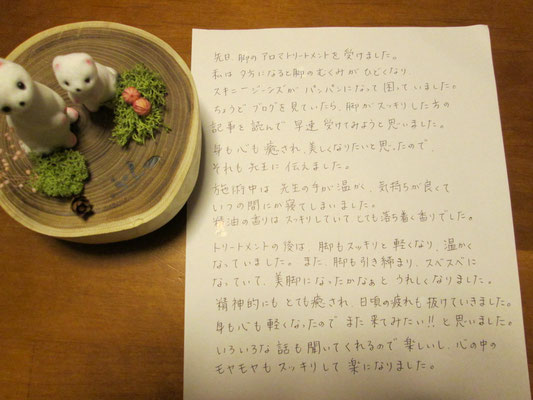 先日、脚のアロマトリートメントを受けました。
私は夕方になると脚のむくみがひどくなり、
スキニージーンズがパンパンになって困っていました。
ちょうどブログを見ていたら、脚がスッキリした方の
記事を読んで早速受けてみようと思いました。
身も心も癒され、美しくなりたいと思ったので、
それも先生に伝えました。
施術中は先生の手が温かく、気持ちが良くて
いつの間にか寝てしまいました。
精油の香りはスッキリしていてとても落ち着く香りでした。
トリートメントの後は、脚もスッキリと軽くなり、温かく
なっていました。また、脚も引き締まり、スベスベに
なっていて、美脚になったかなぁとうれしくなりました。
精神的にもとても癒され、日頃の疲れも抜けていきました。
身も心も軽くなったのでまた来てみたい!!と思いました。
いろいろな話も聞いてくれるので楽しいし、心の中の
モヤモヤもスッキリして楽になりました。